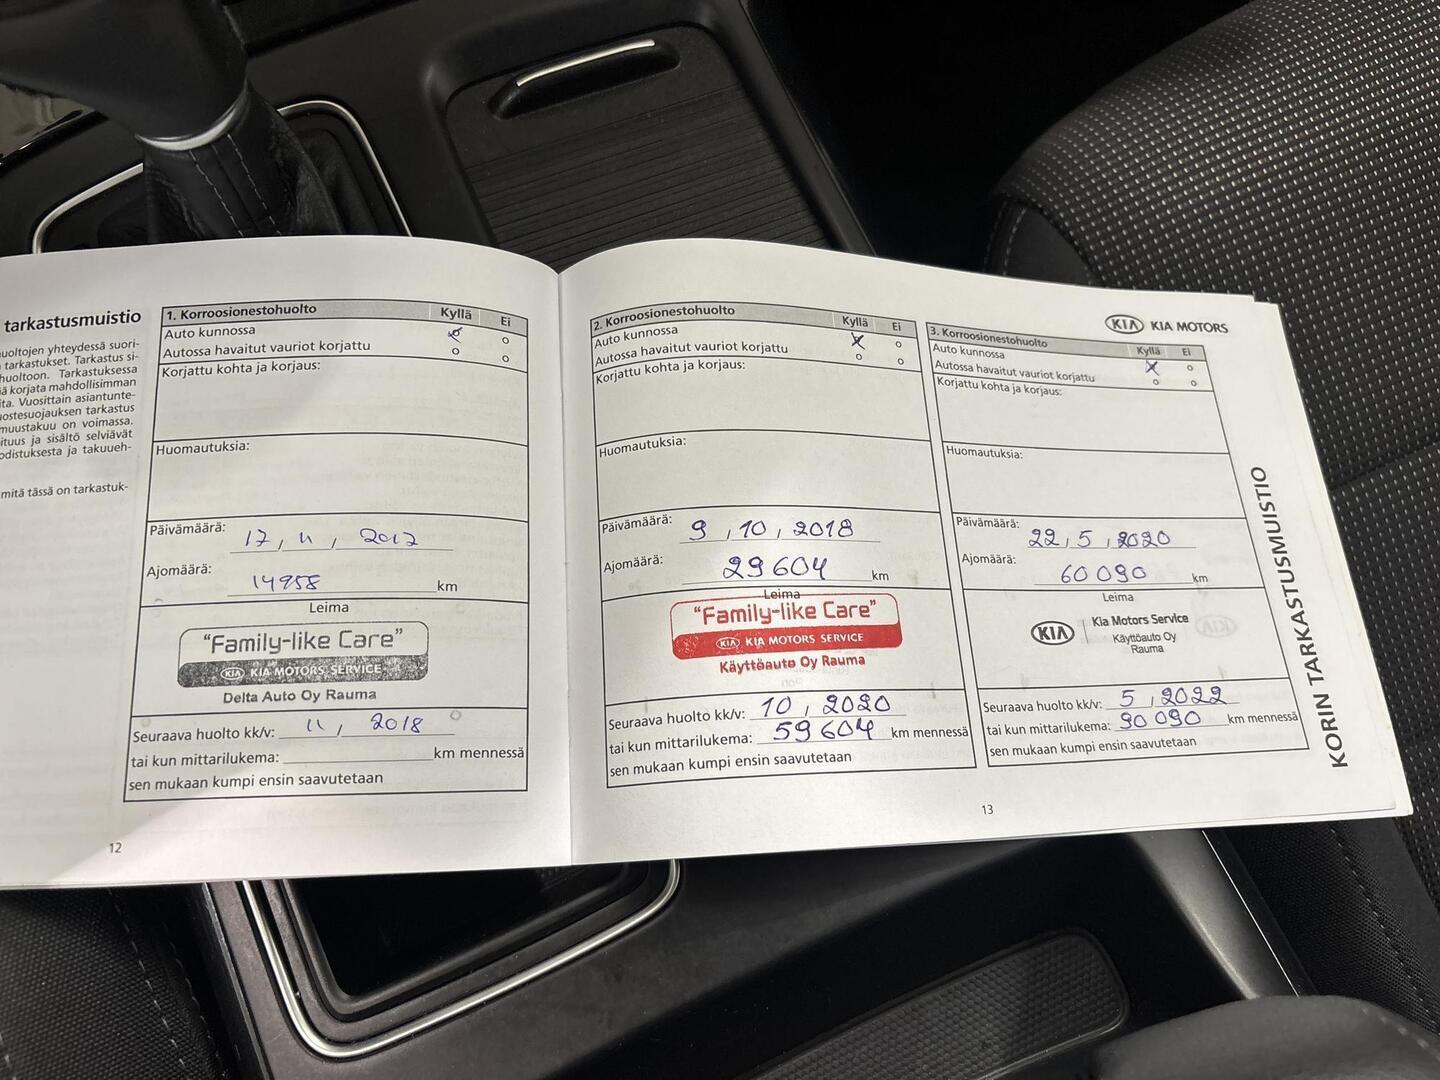 tarkastusmuistio
uoltojen yhteydessä suori-
tarkastukset. Tarkastus si-
huoltoon. Tarkastuksessa
ä korjata mahdollisimman
ita. Vuosittain asiantunte-
ostesuojauksen tarkastus
muustakuu on voimassa.
ituus ja sisältö selviävät
odistuksesta ja takuueh-
mitä tässä on tarkastuk-
12
1. Korroosionestohuolto Kyllä Ei
Auto kunnossa
Autossa havaitut vauriot korjattu
Korjattu kohta ja korjaus:
Huomautuksia:
Päivämäärä: 17, 11, 2017
Ajomäärä: 14958 km
Leima
"Family-like Care"
KIA KIA MOTORS SERVICE
Delta Auto Oy Rauma
Seuraava huolto kk/v: 11, 2018
tai kun mittarilukema: km mennessä
sen mukaan kumpi ensin saavutetaan
2. Korroosionestohuolto Kyllä Ei
Auto kunnossa
Autossa havaitut vauriot korjattu
Korjattu kohta ja korjaus:
Huomautuksia:
Päivämäärä: 9, 10, 2018
Ajomäärä: 29604 km
Leima
"Family-like Care"
KIA KIA MOTORS SERVICE
Käyttöauto Oy Rauma
Seuraava huolto kk/v: 10, 2020
tai kun mittarilukema: 59604 km mennessä
sen mukaan kumpi ensin saavutetaan
KIA KIA MOTORS
3. Korroosionestohuolto Kyllä Ei
Auto kunnossa
Autossa havaitut vauriot korjattu
Korjattu kohta ja korjaus:
Huomautuksia:
Päivämäärä: 22, 5, 2020
Ajomäärä: 60 090 km
Leima
KIA Kia Motors Service
Käyttöauto Oy
Rauma
Seuraava huolto kk/v: 5, 2022
tai kun mittarilukema: 90 090 km mennessä
sen mukaan kumpi ensin saavutetaan
KORIN TARKASTUSMUISTIO
13